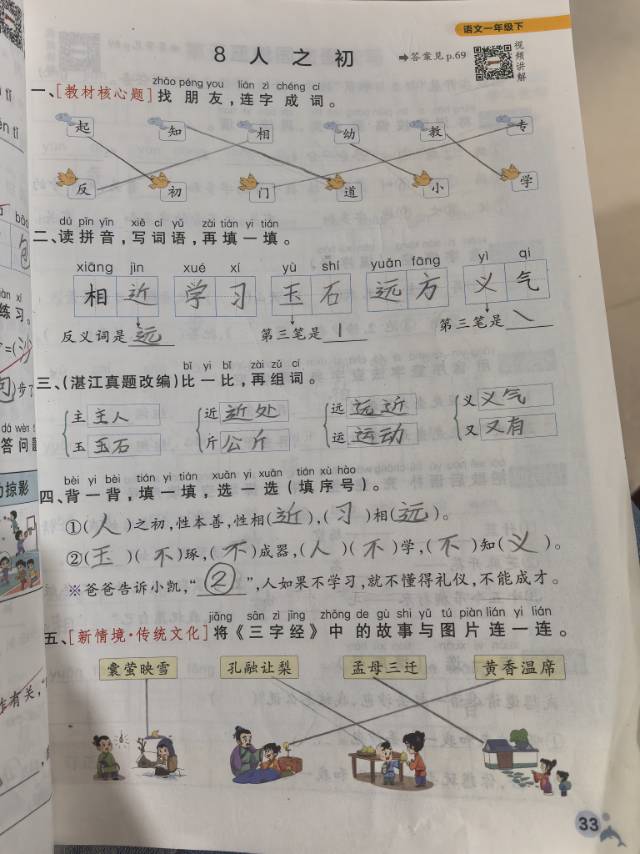 语文一年级下
8 人 之 初
➡答案见 p.69
视频讲解
zhǎo péng you lián zì chéng cí
一、[教材核心题]找 朋 友,连 字 成 词。
起 知 相 幼 教 专
反 初 门 道 小 学
dú pīn yīn xiě cí yǔ zài tián yi tián
二、读 拼 音,写 词 语,再 填 一 填。
xiāng jìn xué xí yù shí yuǎn fāng yì qì
相 近 学 习 玉 石 远 方 义 气
反义词是 远 第三笔是 丨 第三笔是 ㇏
bǐ yi bǐ zài zǔ cí
三、(湛江真题改编)比 一 比,再 组 词。
主 主人 近 近处 远 远近 义 义气
玉 玉石 斤 公斤 运 运动 又 又有
bèi yi bèi tián yi tián xuǎn yi xuǎn tián xù hào
四、背 一 背,填 一 填,选 一 选(填 序 号)。
①(人)之初,性本善,性相(近),(习)相(远)。
②(玉)(不)琢,(不)成器,(人)(不)学,(不)知(义)。
※爸爸告诉小凯,“②”,人如果不学习,就不懂得礼仪,不能成才。
jiāng sān zì jīng zhōng de gù shi yǔ tú piàn lián yi lián
五、[新情境·传统文化]将《三字经》中 的 故 事 与 图 片 连 一 连。
囊萤映雪 孔融让梨 孟母三迁 黄香温席
33